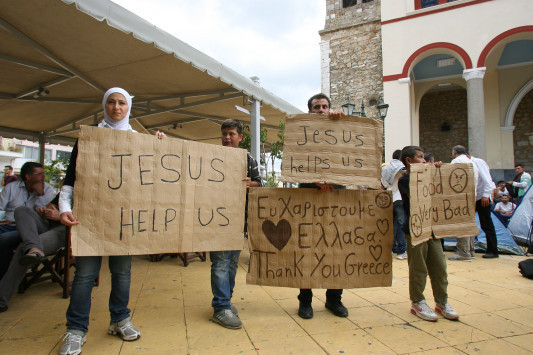 JESUS
HELP US
Jesus
helps us
Ευχαριστουμε
Ελλαδα
Thank You Greece
Food
Very Bad